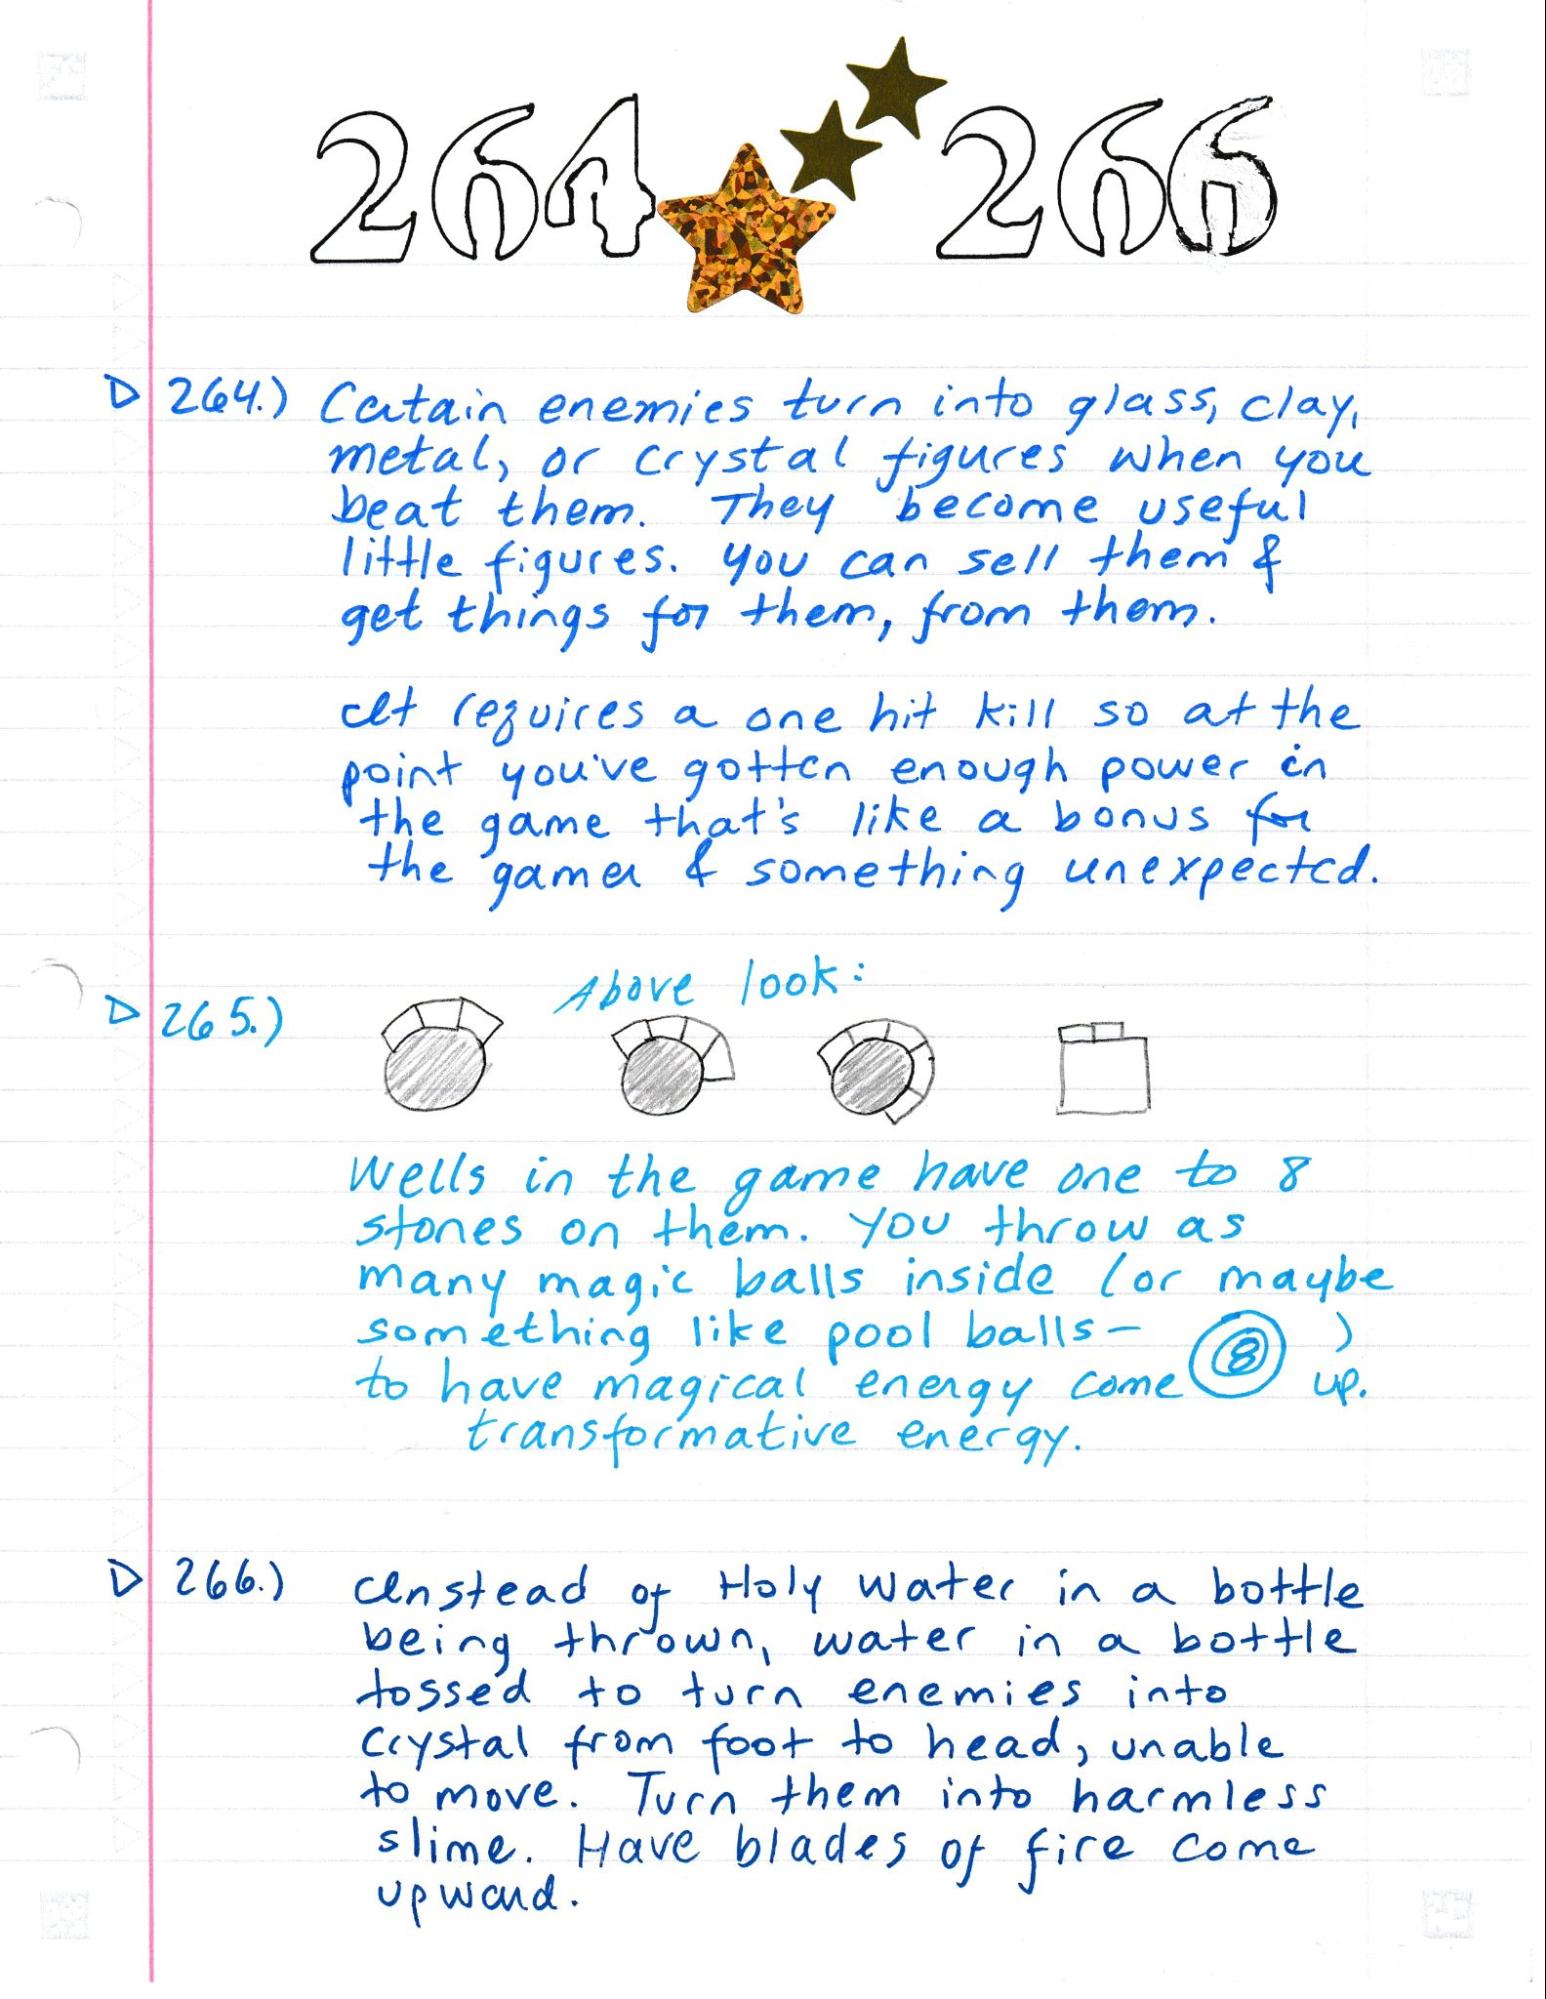 264 266
264.) Certain enemies turn into glass, clay,
metal, or crystal figures when you
beat them. They become useful
little figures. You can sell them &
get things for them, from them.
It requires a one hit kill so at the
point you've gotten enough power in
the game that's like a bonus for
the gamer & something unexpected.
Above look:
265.)
Wells in the game have one to 8
stones on them. You throw as
many magic balls inside (or maybe
something like pool balls- 8 )
to have magical energy come up.
transformative energy.
266.) Instead of Holy Water in a bottle
being thrown, water in a bottle
tossed to turn enemies into
crystal from foot to head, unable
to move. Turn them into harmless
slime. Have blades of fire come
upward.